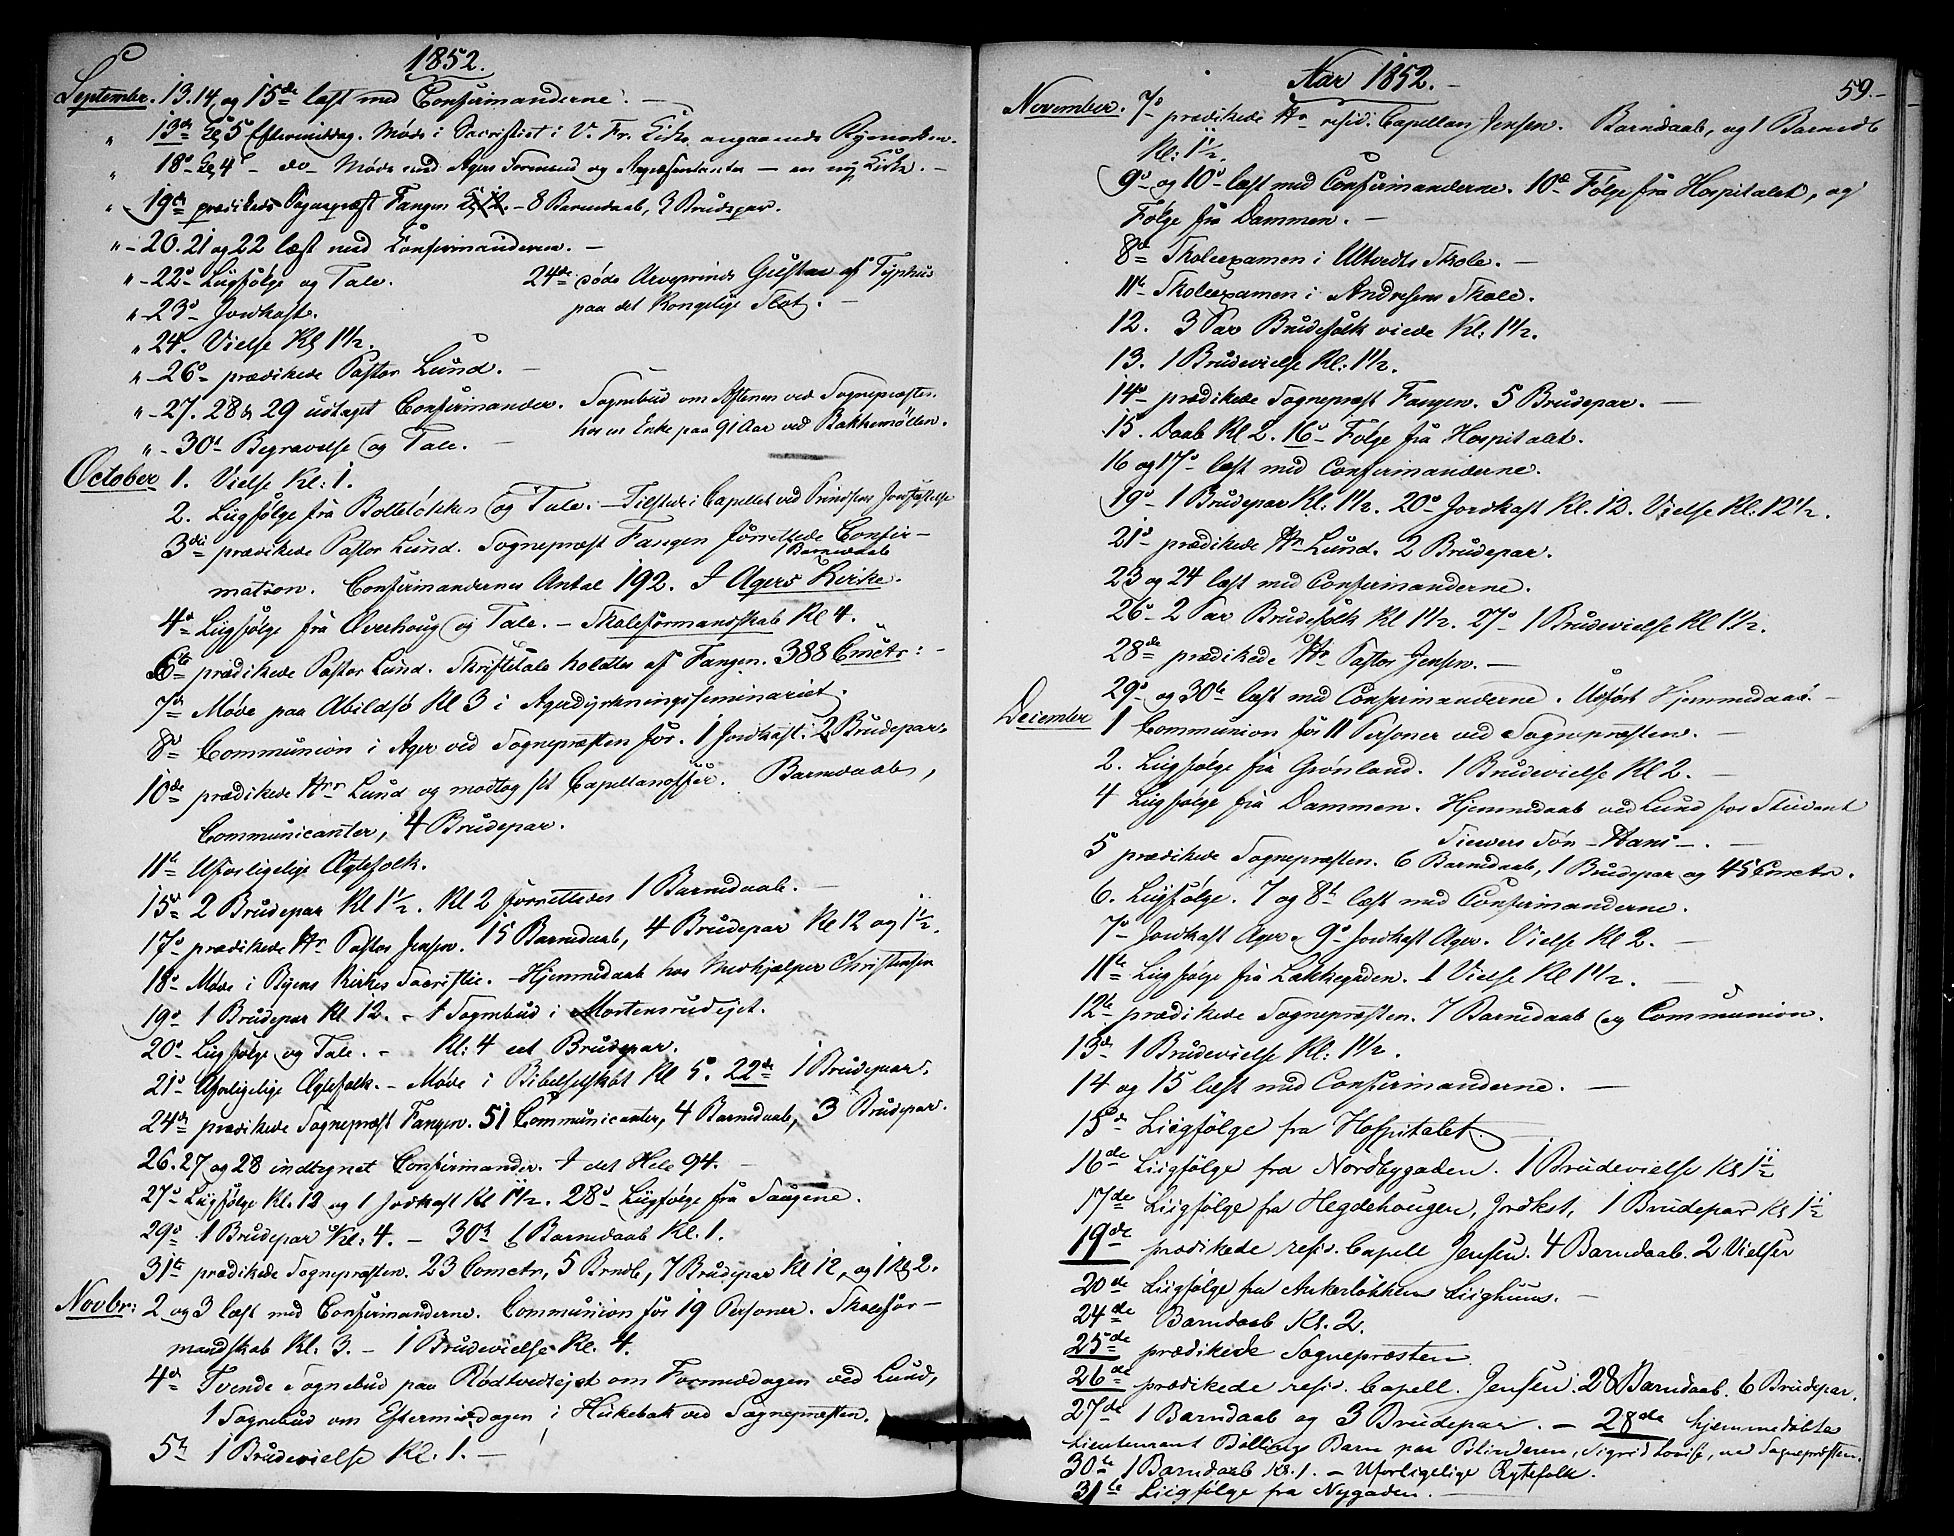 1852.
Septembr. 13. 14 og 15de læst med Confirmanderne. —
" 13de Kl 5 Eftermiddag. Møde i Sacristiet i V. Fr. Kirke angaaende
" 18d Kl 4 — do — Møde med Agers Formænd og Repræsentanter — en ny Kirke. —
" 19de prædikede Sognepræst Fangen Kl 12. — 8 Barnedaab, 3 Brudepar.
" — 20. 21 og 22 læst med Confirmanderne. —
" — 22d Liigfølge og Tale. 24de døde Arveprinds Gustav af Typhus
" — 23d Jordkast. paa det kongelige Slot. —
" 24. Vielse Kl 1 1/2.
" — 26d prædikede Pastor Lund. —
" — 27. 28 & 29 udtaget Confirmander. Sognebud om Aftenen ved Sognepræsten
" — 30d Begravelse og Tale. — hos en Enke paa 91 Aar ved Bakkemøllen.
October 1. Vielse Kl: 1.
2. Liigfølge fra Bolteløkken og Tale. — Tilstede i Capellet ved Prindsens Jordfæstelse
3die prædikede Pastor Lund. Sognepræst Fangen forrettede Confir-
1 Barnedaab
mation. Confirmandernes Antal 192. I Agers Kirke.
4d Liigfølge fra Øverhoug og Tale. — Skoleformandskab Kl 4.
6te prædikede Pastor Lund. Skriftetale holdtes af Fangen. 388 Cmctr: —
7de Møde paa Abildsø Kl 3 i Agerdyrkningsseminariet.
8d Communion i Ager ved Sognepræsten for. 1 Jordkast. 2 Brudepar.
10de prædikede Hrr Lund og modtog sit Capellanoffer. Barnedaab,
Communicanter, 4 Brudepar.
11te Uforligelige Ægtefolk.
15d 2 Brudepar Kl 1 1/2. Kl 2 forrettedes 1 Barnedaab. —
17d prædikede Hr Pastor Jensen. 15 Barnedaab, 4 Brudepar Kl 12 og 1 1/2.
18d Møde i Byens Kirkes Sacristie. — Hjemmedaab hos Medhjælper Christensen
19d 1 Brudepar Kl 12. — 1 Sognebud i Mortensrudejet.
20d Liigfølge og Tale. — Kl: 4 eet Brudepar.
21d Uforligelige Ægtefolk. — Møde i Bibelselskbt Kl 5. 22de 1 Brudepar.
24de prædikede Sognepræst Fangen. 51 Communicanter, 4 Barnedaab, 3 Brudepar.
26. 27 og 28 indtegnet Confirmander. I det Hele 94. —
27d Liigfølge Kl. 12 og 1 Jordkast Kl 1 1/2. 28d Liigfølge fra Saugene.
29d 1 Brudepar Kl: 4. — 30te 1 Barnedaab Kl. 1.
31te prædikede Sognepræsten. 23 Comctr, 5 Brndb, 7 Brudepar Kl 12, og 1 Kl 2.
Novbr: 2 og 3 læst med Confirmanderne. Communion for 19 Personer. Skolefor-
mandskab Kl. 3. — 1 Brudevielse Kl. 4.
4de Tvende Sognebud paa Rødtvedtejet om Formiddagen ved Lund,
1 Sognebud om Eftermiddagen i Hukebak ved Sognepræsten.
5te 1 Brudevielse Kl. 1. —
Aar 1852. — 59. —
November. 7d prædikede Hr resid. Capellan Jensen. Barndaab, og 1 Barnedb
Kl: 1 1/2.
9d og 10d læst med Confirmanderne. 10de Følge fra Hospitalet, og
Følge fra Dammen. —
8de Skoleexamen i Ullvedts Skole. —
11te Skoleexamen i Andresens Skole.
12. 3 Par Brudefolk viede Kl: 1 1/2.
13. 1 Brudevielse Kl: 1 1/2.
14d prædikede Sognepræst Fangen. 5 Brudepar. —
15. Daab Kl 2. 16d Følge fra Hospitalet.
16 og 17d læst med Confirmanderne.
19d 1 Brudepar Kl: 1 1/2. 20d Jordkast Kl. 12. Vielse Kl: 12 1/2.
21d prædikede Hr Lund. 2 Brudepar.
23 og 24 læst med Confirmanderne.
26d 2 Par Brudefolk Kl 1 1/2. 27d 1 Brudevielse Kl 1 1/2.
28de prædikede Hr Pastor Jensen. —
29d og 30te læst med Confirmanderne. Udført Hjemmedaab. —
December 1 Communion for 11 Personer ved Sognepræsten. —
2. Liigfølge fra Grønland. 1 Brudevielse Kl 2. —
4 Liigfølge fra Dammen. Hjemmedaab ved Lund for Student
Siewers Søn — Hans —.
5 prædikede Sognepræsten. 6 Barnedaab, 1 Brudepar og 45 Comctr.
6. Liigfølge. 7 og 8de læst med Confirmanderne.
7d Jordkast Ager. 9d Jordkast Ager. Vielse Kl 2. —
11te Liigfølge fra Lakkegaden. 1 Vielse Kl 1 1/2. —
12te prædikede Sognepræsten. 7 Barnedaab og Communion.
13de 1 Brudevielse Kl: 1 1/2.
14 og 15 læst med Confirmanderne. —
15de Liigfølge fra Hospitalet. —
16de Liigfølge fra Nordbygaden. 1 Brudevielse Kl 1 1/2
17de Liigfølge fra Hegdehougen, Jordkst, 1 Brudepar Kl 1 1/2
19de prædikede resid. Capell Jensen. 4 Barndaab. 2 Vielser
20de Liigfølge fra Ankerløkkens Liighuus. —
24de Barndaab Kl. 2.
25de prædikede Sognepræsten
26de prædikede resid. Capell. Jensen. 28 Barndaab. 6 Brudepar.
27de 1 Barndaab og 3 Brudepar. — 28de hjemmedøbtes
Lieutenant Böllings Barn paa Blinderen, Sigrid Lovise, ved Sognepræsten.
30te 1 Barndaab Kl. 1. — Uforligelige Ægtefolk.
31te Liigfølge fra Nygaden. —